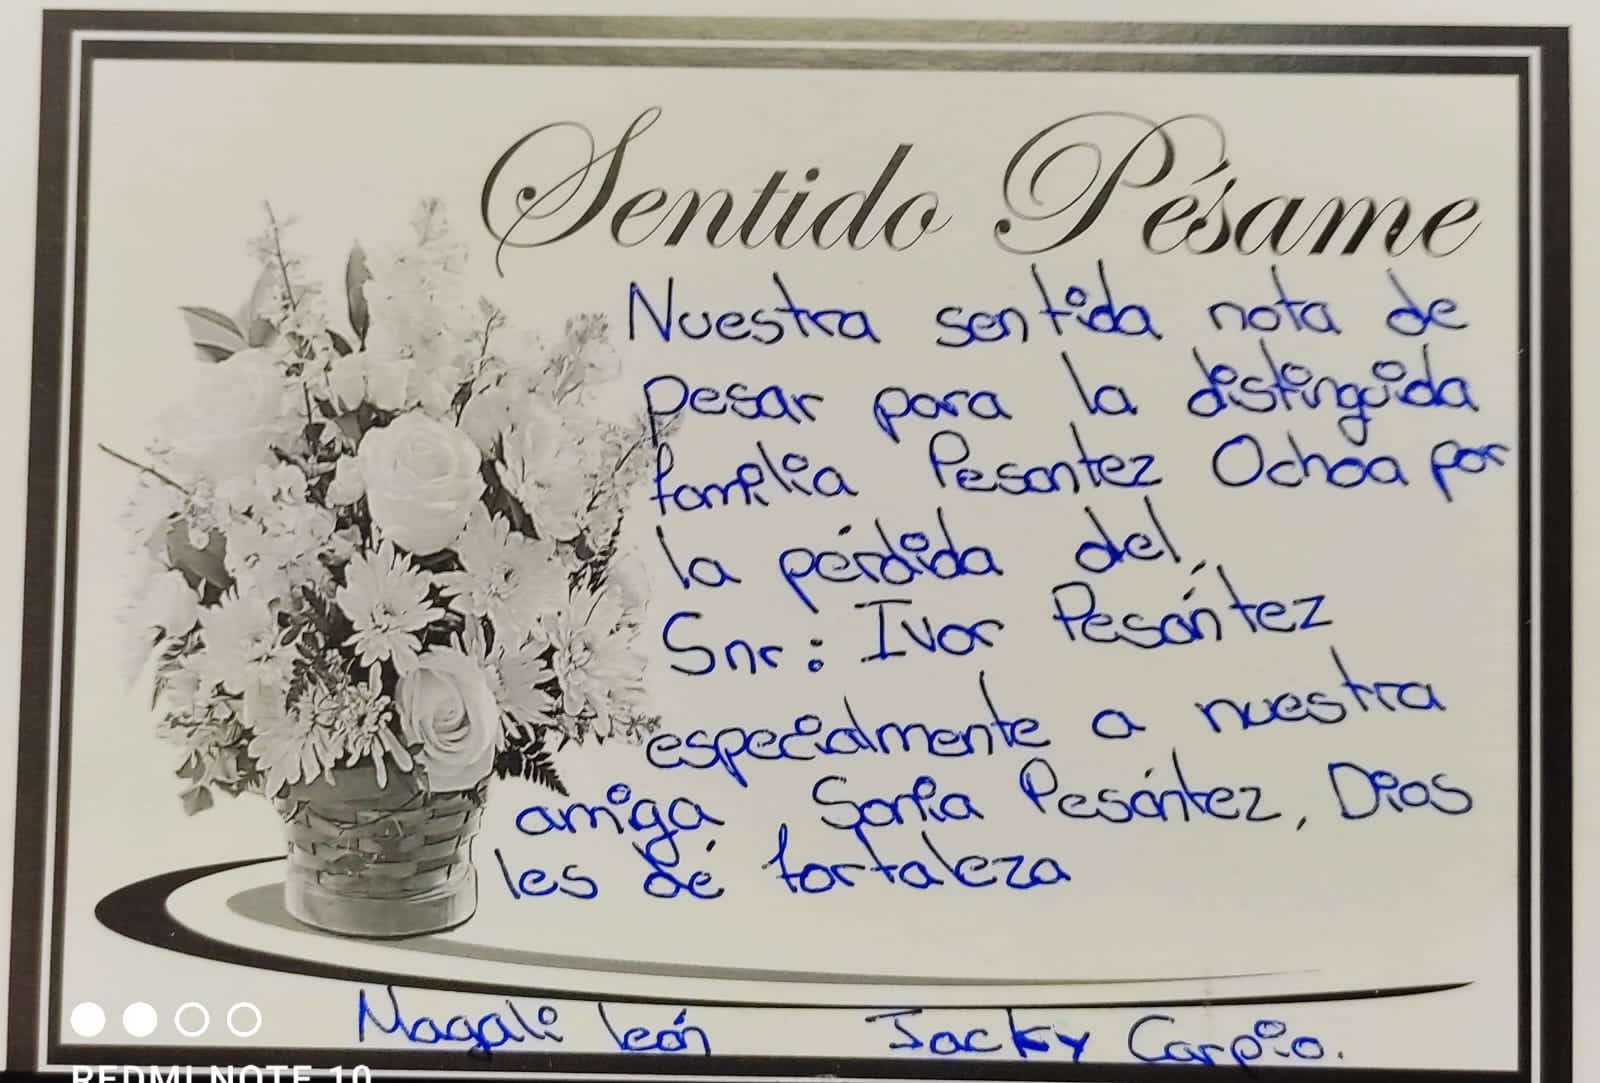 Sentido Pésame
Nuestra sentida nota de
pesar para la distinguida
familia Pesantez Ochoa por
la pérdida del,
Snr: Ivor Pesántez
especialmente a nuestra
amiga, Sonia Pesántez, Dios
les dé fortaleza
Magali León Jacky Carpio.
REDMI NOTE 10